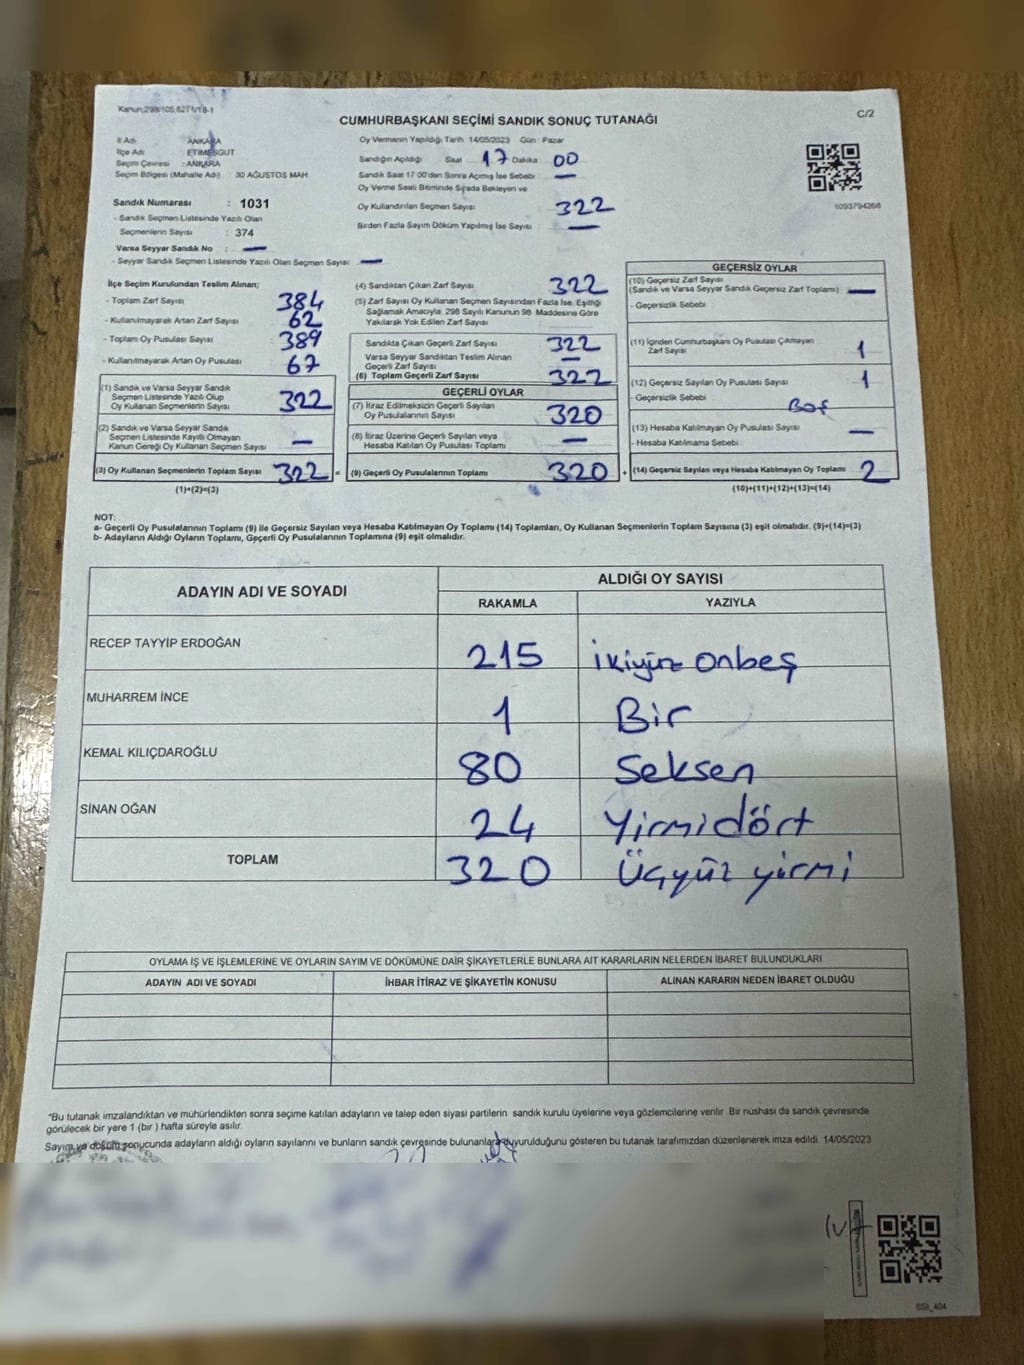 Kanun:298/105,6271/18-1
CUMHURBAŞKANI SEÇİMİ SANDIK SONUÇ TUTANAĞI
C/2
İl Adı ANKARA
İlçe Adı ETİMESGUT
Seçim Çevresi : ANKARA
Seçim Bölgesi (Mahalle Adı) : 30 AĞUSTOS MAH
Sandık Numarası : 1031
- Sandık Seçmen Listesinde Yazılı Olan
Seçmenlerin Sayısı : 374
Varsa Seyyar Sandık No : —
- Seyyar Sandık Seçmen Listesinde Yazılı Olan Seçmen Sayısı : —
Oy Vermenin Yapıldığı Tarih 14/05/2023 Gün : Pazar
Sandığın Açıldığı Saat 17 Dakika 00
Sandık Saat 17:00'den Sonra Açılmış İse Sebebi —
Oy Verme Saati Bitiminde Sırada Bekleyen ve
Oy Kullandırılan Seçmen Sayısı 322
Birden Fazla Sayım Döküm Yapılmış İse Sayısı —
1093794266
İlçe Seçim Kurulundan Teslim Alınan;
- Toplam Zarf Sayısı 384
- Kullanılmayarak Artan Zarf Sayısı 62
- Toplam Oy Pusulası Sayısı 389
- Kullanılmayarak Artan Oy Pusulası 67
(1) Sandık ve Varsa Seyyar Sandık
Seçmen Listesinde Yazılı Olup
Oy Kullanan Seçmenlerin Sayısı 322
(2) Sandık ve Varsa Seyyar Sandık
Seçmen Listesinde Kayıtlı Olmayan
Kanun Gereği Oy Kullanan Seçmen Sayısı —
(3) Oy Kullanan Seçmenlerin Toplam Sayısı 322 =
(1)+(2)=(3)
(4) Sandıktan Çıkan Zarf Sayısı 322
(5) Zarf Sayısı Oy Kullanan Seçmen Sayısından Fazla İse, Eşitliği
Sağlamak Amacıyla, 298 Sayılı Kanunun 98. Maddesine Göre
Yakılarak Yok Edilen Zarf Sayısı
Sandıkta Çıkan Geçerli Zarf Sayısı 322
Varsa Seyyar Sandıktan Teslim Alınan
Geçerli Zarf Sayısı —
(6) Toplam Geçerli Zarf Sayısı 322
GEÇERLİ OYLAR
(7) İtiraz Edilmeksizin Geçerli Sayılan
Oy Pusulalarının Sayısı 320
(8) İtiraz Üzerine Geçerli Sayılan veya
Hesaba Katılan Oy Pusulası Toplamı —
(9) Geçerli Oy Pusulalarının Toplamı 320 +
GEÇERSİZ OYLAR
(10) Geçersiz Zarf Sayısı
(Sandık ve Varsa Seyyar Sandık Geçersiz Zarf Toplamı) —
- Geçersizlik Sebebi
(11) İçinden Cumhurbaşkanı Oy Pusulası Çıkmayan
Zarf Sayısı 1
(12) Geçersiz Sayılan Oy Pusulası Sayısı 1
- Geçersizlik Sebebi Boş
(13) Hesaba Katılmayan Oy Pusulası Sayısı —
- Hesaba Katılmama Sebebi
(14) Geçersiz Sayılan veya Hesaba Katılmayan Oy Toplamı 2
(10)+(11)+(12)+(13)=(14)
NOT:
a- Geçerli Oy Pusulalarının Toplamı (9) ile Geçersiz Sayılan veya Hesaba Katılmayan Oy Toplamı (14) Toplamları, Oy Kullanan Seçmenlerin Toplam Sayısına (3) eşit olmalıdır. (9)+(14)=(3)
b- Adayların Aldığı Oyların Toplamı, Geçerli Oy Pusulalarının Toplamına (9) eşit olmalıdır.
ADAYIN ADI VE SOYADI
ALDIĞI OY SAYISI
RAKAMLA YAZIYLA
RECEP TAYYİP ERDOĞAN 215 ikiyüz onbeş
MUHARREM İNCE 1 Bir
KEMAL KILIÇDAROĞLU 80 Seksen
SİNAN OĞAN 24 Yirmidört
TOPLAM 320 Üçyüz yirmi
OYLAMA İŞ VE İŞLEMLERİNE VE OYLARIN SAYIM VE DÖKÜMÜNE DAİR ŞİKAYETLERLE BUNLARA AİT KARARLARIN NELERDEN İBARET BULUNDUKLARI
ADAYIN ADI VE SOYADI İHBAR İTİRAZ VE ŞİKAYETİN KONUSU ALINAN KARARIN NEDEN İBARET OLDUĞU
*Bu tutanak imzalandıktan ve mühürlendikten sonra seçime katılan adayların ve talep eden siyasi partilerin sandık kurulu üyelerine veya gözlemcilerine verilir. Bir nüshası da sandık çevresinde
görülecek bir yere 1 (bir ) hafta süreyle asılır.
Sayım ve döküm sonucunda adayların aldığı oyların sayılarını ve bunların sandık çevresinde bulunanlara duyurulduğunu gösteren bu tutanak tarafımızdan düzenlenerek imza edildi. 14/05/2023
SSI_404